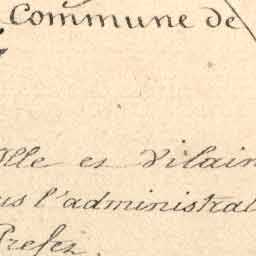 Commune de
Ille et Vilain
us l'administrat
Prefet.